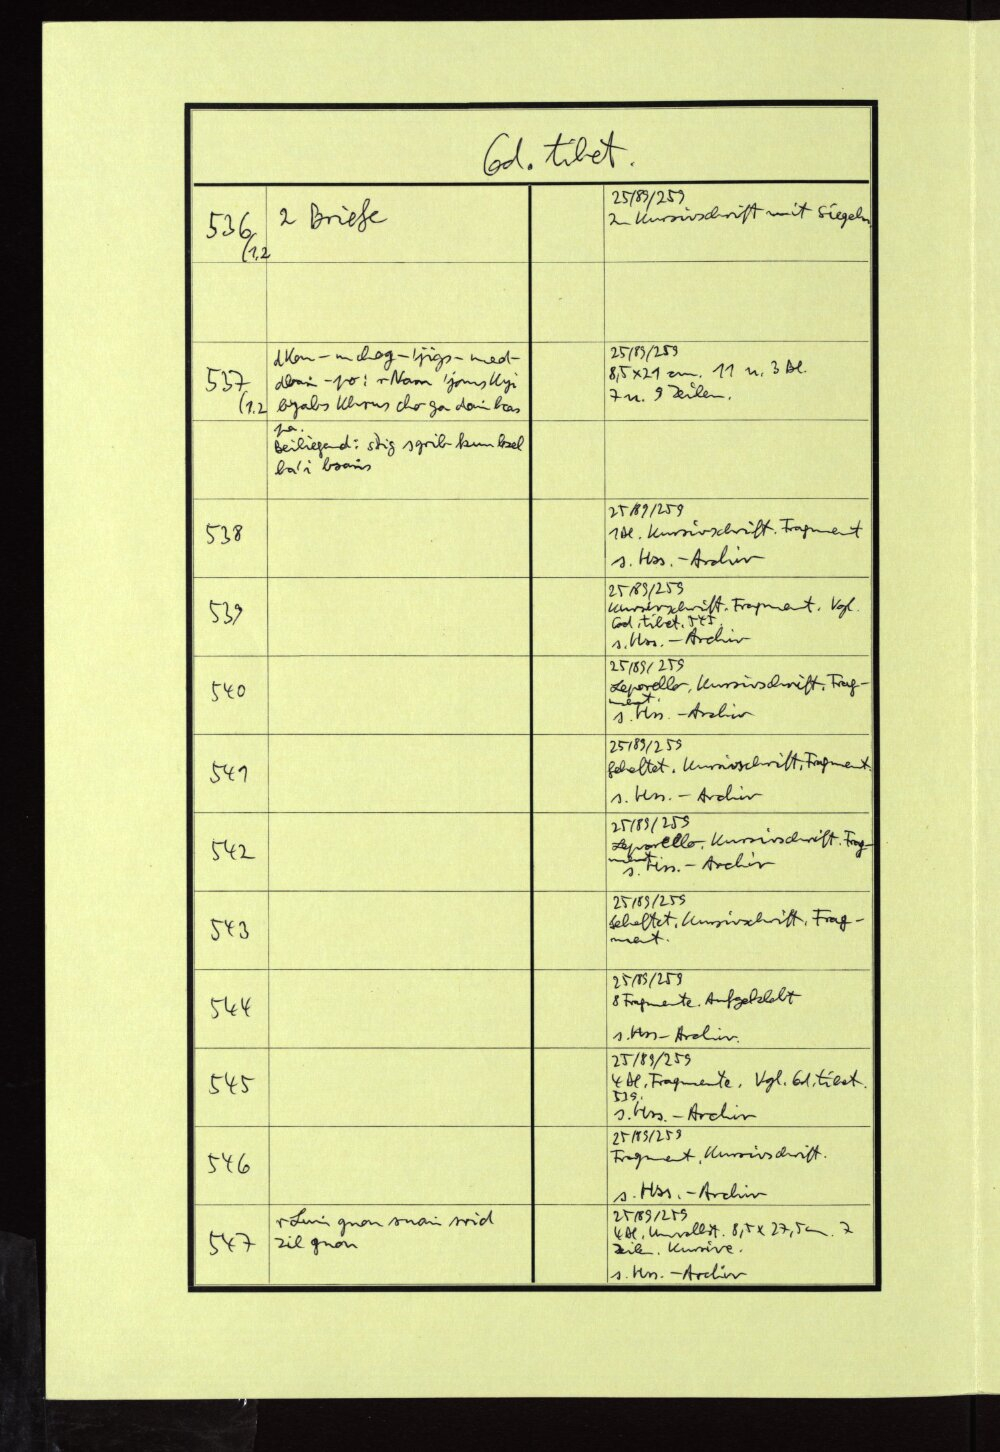 Cod. tibet.
536
(1.2
2 Briefe
25/89/259
2 Kursivschrift mit Siegeln
537
(1.2
dKon-mchog-'jigs-med-
dbaṅ-po: rNam 'joms Kyi
bsgabs Khrus cho ga daṅ bcas
pa.
Beiliegend: sdig sgrib kun bsel
ba'i bsaṅs
25/89/259
8,5 x 21 cm. 11 u. 3 Bl.
7 u. 9 Zeilen.
538
25/89/259
1 Bl. Kursivschrift. Fragment
s. Hss.-Archiv
539
25/89/259
Kursivschrift. Fragment. Vgl.
Cod. tibet. 545.
s. Hss.-Archiv
540
25/89/259
Leporello, Kursivschrift, Frag-
ment.
s. Hss.-Archiv
541
25/89/259
Geheftet. Kursivschrift, Fragment.
s. Hss.-Archiv
542
25/89/259
Leporello. Kursivschrift. Frag-
ment.
s. Hss.-Archiv
543
25/89/259
Geheftet, Kursivschrift, Frag-
ment.
544
25/89/259
8 Fragmente. Aufgeklebt
s. Hss-Archiv.
545
25/89/259
4 Bl. Fragmente. Vgl. Cod. tibet.
539.
s. Hss.-Archiv
546
25/89/259
Fragment, Kursivschrift.
s. Hss.-Archiv
547
gnon snaṅ srid
zil gnon
25/89/259
4 Bl. Unvollst. 8,5 x 27,5 cm. 7
Zeilen. Kursive.
s. Hss.-Archiv